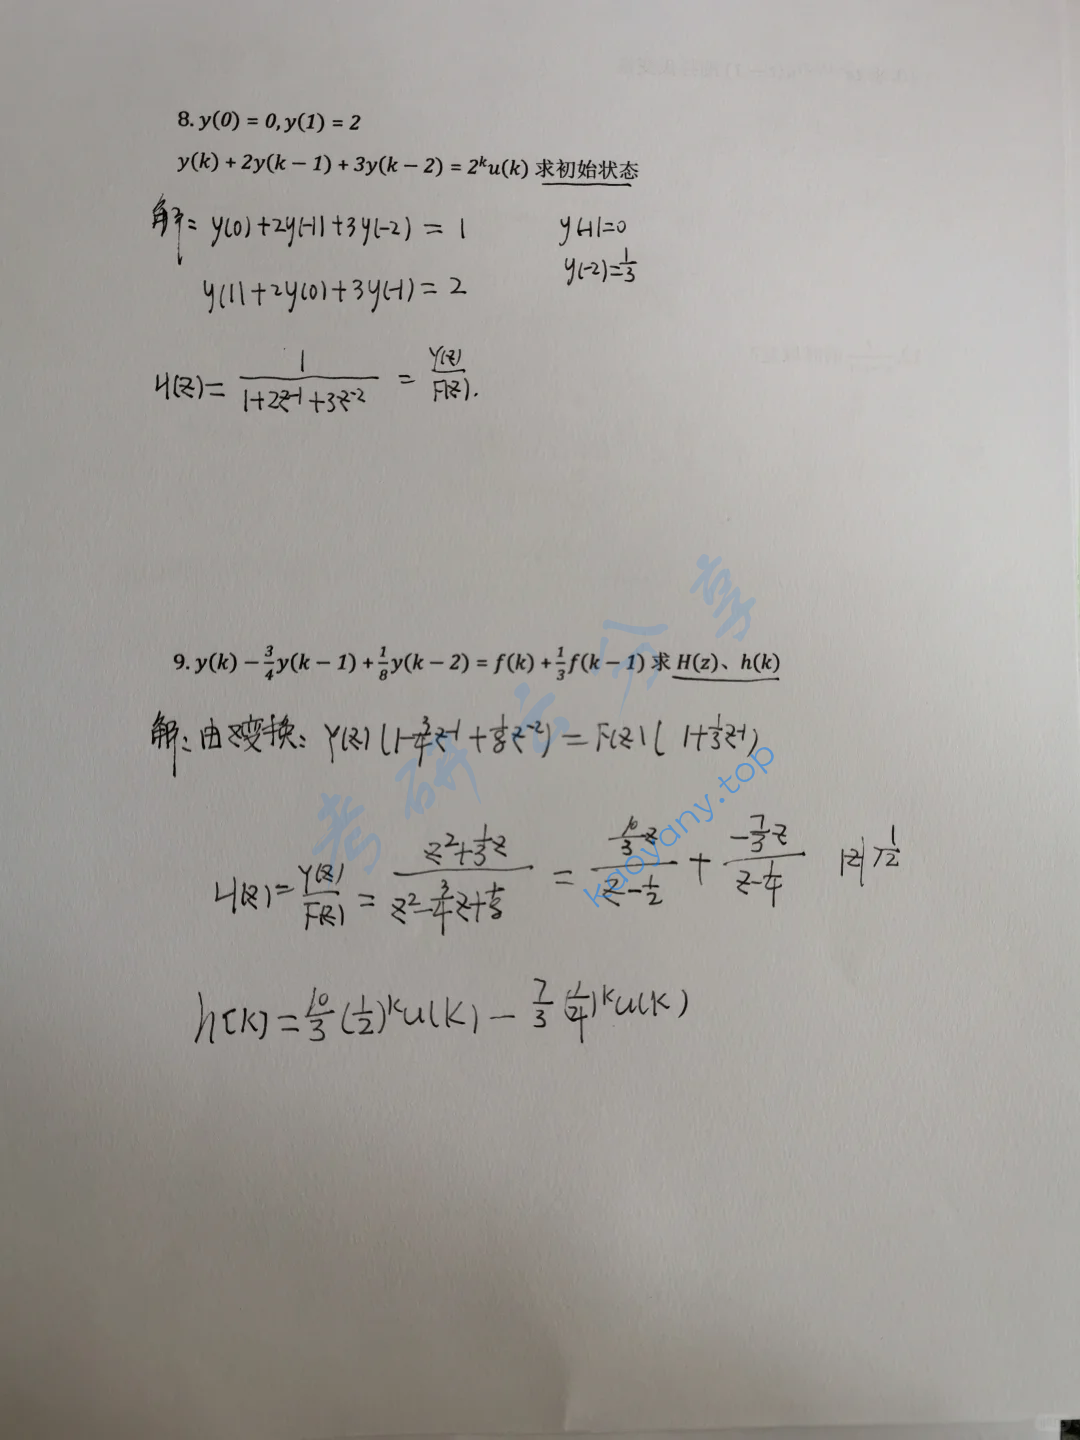 8. y(0) = 0, y(1) = 2
y(k) + 2y(k − 1) + 3y(k − 2) = 2^k u(k) 求初始状态
解: y(0)+2y(-1)+3y(-2) = 1 y(-1)=0
y(1)+2y(0)+3y(-1) = 2 y(-2)=1/3
H(z) = 1/(1+2z^-1+3z^-2) = Y(z)/F(z).
9. y(k) − 3/4 y(k − 1) + 1/8 y(k − 2) = f(k) + 1/3 f(k − 1) 求 H(z)、h(k)
解: 由z变换: Y(z)(1-3/4 z^-1 + 1/8 z^-2) = F(z)(1+1/3 z^-1)
H(z) = Y(z)/F(z) = (z^2+1/3 z)/(z^2-3/4 z+1/8) = (10/3 z)/(z-1/2) + (-7/3 z)/(z-1/4) |z|>1/2
h[k] = 10/3 (1/2)^k u(k) − 7/3 (1/4)^k u(k)
考研云分享
kaoyany.top